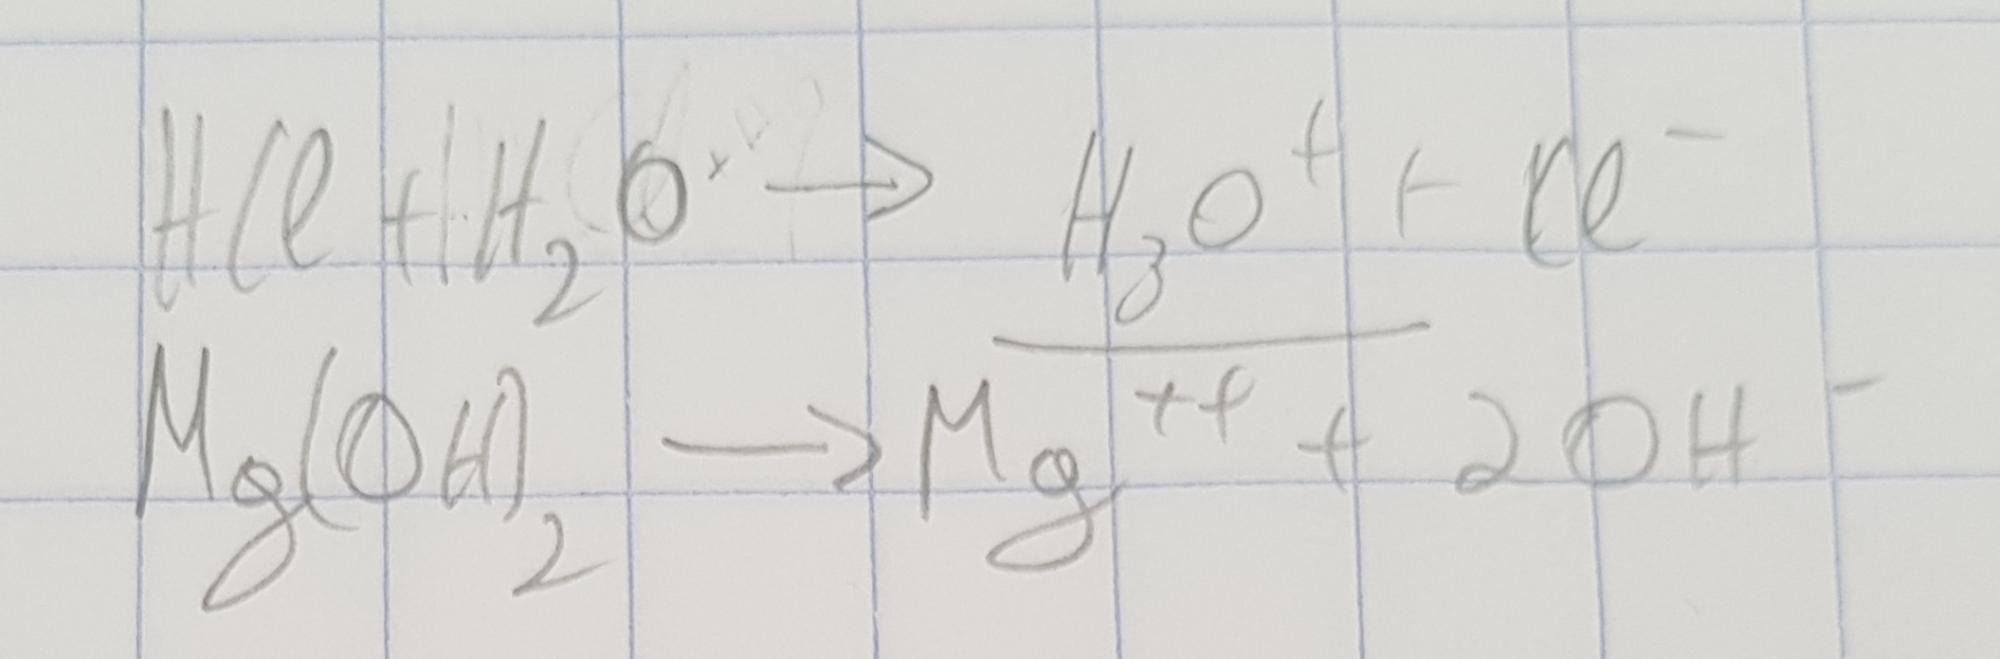 HCl + H₂O → H₃O⁺ + Cl⁻
Mg(OH)₂ → Mg⁺⁺ + 2OH⁻